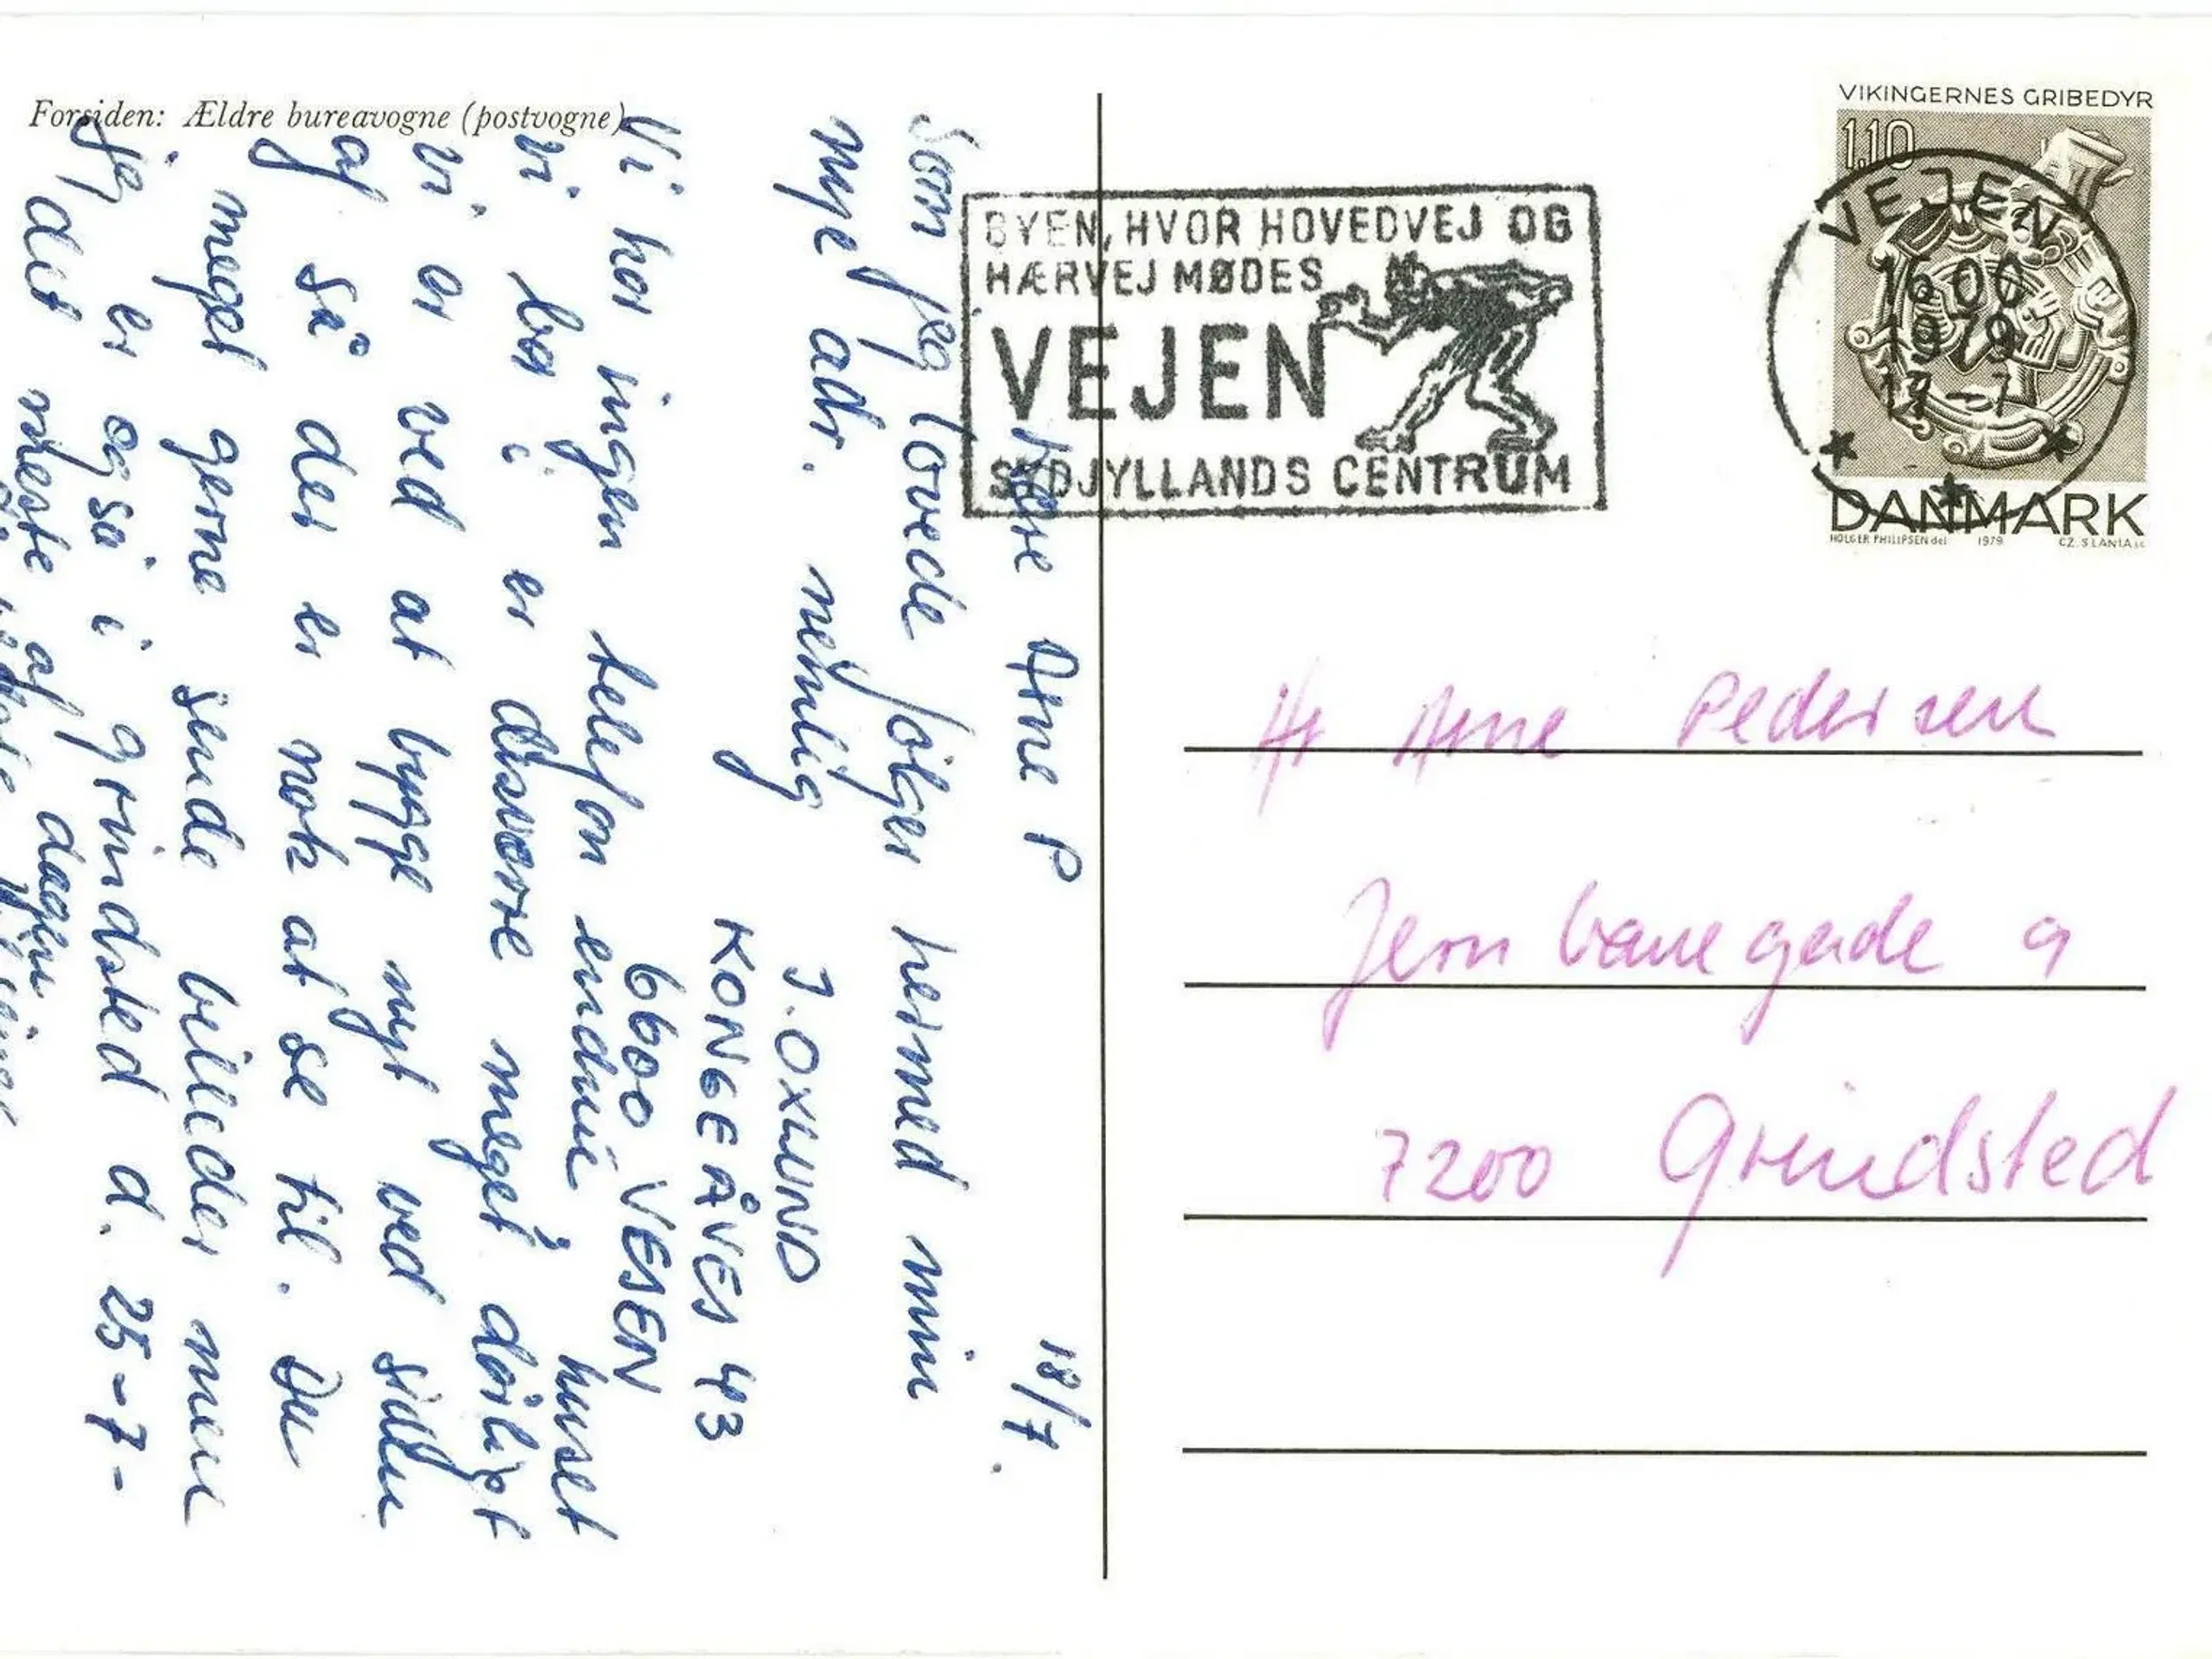 Forsiden: Ældre bureavogne (postvogne)
18/7.
Kære Arne P
Som jeg lovede følger hermed min
nye adr. nemlig
J. OXLUND
KONGEÅVEJ 43
6600 VEJEN
Vi har ingen telefon endnu, huset
vi bor i er desværre meget dårligt
vi er ved at bygge nyt ved siden
af så der er nok at se til. Du
meget gerne sende billeder men
jeg er også i Grindsted d. 25-7-
det meste af dagen
BYEN, HVOR HOVEDVEJ OG
HÆRVEJ MØDES
VEJEN
SYDJYLLANDS CENTRUM
VIKINGERNES GRIBEDYR
1.10
VEJEN
1979
DANMARK
HOLGER PHILIPSEN del 1979 CZ. SLANIA sc
Hr Arne Pedersen
Jernbanegade 9
7200 Grindsted